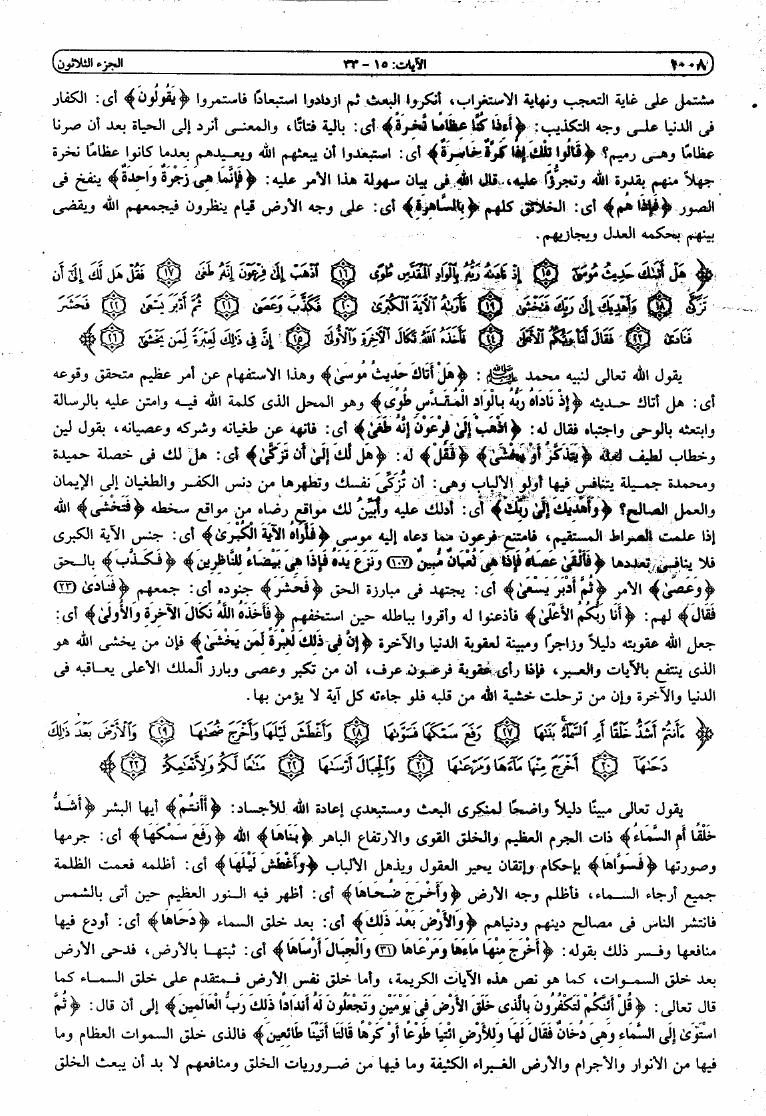 ٢٠٠٨ الآيات: ١٥ - ٣٣ الجزء الثلاثون
مشتمل على غاية التعجب ونهاية الاستغراب، أنكروا البعث ثم ازدادوا استبعادًا فاستمروا ﴿يَقُولُونَ﴾ أى: الكفار
فى الدنيا على وجه التكذيب: ﴿أَئِذَا كُنَّا عِظَامًا نَّخِرَةً﴾ أى: بالية فتاتًا، والمعنى أنرد إلى الحياة بعد أن صرنا
عظامًا وهى رميم؟ ﴿قَالُوا تِلْكَ إِذًا كَرَّةٌ خَاسِرَةٌ﴾ أى: استبعدوا أن يبعثهم الله ويعيدهم بعدما كانوا عظامًا نخرة
جهلاً منهم بقدرة الله وتجرُّؤًا عليه، قال الله فى بيان سهولة هذا الأمر عليه: ﴿فَإِنَّمَا هِىَ زَجْرَةٌ وَاحِدَةٌ﴾ ينفخ فى
الصور ﴿فَإِذَا هُم﴾ أى: الخلائق كلهم ﴿بِالسَّاهِرَةِ﴾ أى: على وجه الأرض قيام ينظرون فيجمعهم الله ويقضى
بينهم بحكمه العدل ويجازيهم.
﴿هَلْ أَتَىٰكَ حَدِيثُ مُوسَىٰٓ ﴿١٥﴾ إِذْ نَادَىٰهُ رَبُّهُ بِالْوَادِ الْمُقَدَّسِ طُوًى ﴿١٦﴾ اذْهَبْ إِلَىٰ فِرْعَوْنَ إِنَّهُ طَغَىٰ ﴿١٧﴾ فَقُلْ هَل لَّكَ إِلَىٰٓ أَن
تَزَكَّىٰ ﴿١٨﴾ وَأَهْدِيَكَ إِلَىٰ رَبِّكَ فَتَخْشَىٰ ﴿١٩﴾ فَأَرَىٰهُ الْآيَةَ الْكُبْرَىٰ ﴿٢٠﴾ فَكَذَّبَ وَعَصَىٰ ﴿٢١﴾ ثُمَّ أَدْبَرَ يَسْعَىٰ ﴿٢٢﴾ فَحَشَرَ
فَنَادَىٰ ﴿٢٣﴾ فَقَالَ أَنَا رَبُّكُمُ الْأَعْلَىٰ ﴿٢٤﴾ فَأَخَذَهُ اللَّهُ نَكَالَ الْآخِرَةِ وَالْأُولَىٰٓ ﴿٢٥﴾ إِنَّ فِى ذَٰلِكَ لَعِبْرَةً لِّمَن يَخْشَىٰٓ ﴿٢٦﴾﴾
يقول الله تعالى لنبيه محمد ﷺ: ﴿هَلْ أَتَاكَ حَدِيثُ مُوسىٰ﴾ وهذا الاستفهام عن أمر عظيم متحقق وقوعه
أى: هل أتاك حديثه ﴿إِذْ نَادَاهُ رَبُّهُ بِالْوَادِ الْمُقَدَّسِ طُوًى﴾ وهو المحل الذى كلمة الله فيه وامتن عليه بالرسالة
وابتعثه بالوحى واجتباه فقال له: ﴿اذْهَبْ إِلَىٰ فِرْعَوْنَ إِنَّهُ طَغَىٰ﴾ أى: فانهه عن طغيانه وشركه وعصيانه، بقول لين
وخطاب لطيف لعله ﴿يَتَذَكَّرُ أَوْ يَخْشَىٰ﴾ ﴿فَقُلْ﴾ له: ﴿هَل لَّكَ إِلَىٰ أَن تَزَكَّىٰ﴾ أى: هل لك فى خصلة حميدة
ومحمدة جميلة يتنافس فيها أولو الألباب وهى: أن تُزَكِّى نفسك وتطهرها من دنس الكفر والطغيان إلى الإيمان
والعمل الصالح؟ ﴿وَأَهْدِيَكَ إِلَىٰ رَبِّكَ﴾ أى: أدلك عليه وأُبيِّنُ لك مواقع رضاه من مواقع سخطه ﴿فَتَخْشَىٰ﴾ الله
إذا علمت الصراط المستقيم، فامتنع فرعون مما دعاه إليه موسى ﴿فَأَرَاهُ الآيَةَ الْكُبْرَىٰ﴾ أى: جنس الآية الكبرى
فلا ينافى تعددها ﴿فَأَلْقَىٰ عَصَاهُ فَإِذَا هِىَ ثُعْبَانٌ مُّبِينٌ ﴿١٠٧﴾ وَنَزَعَ يَدَهُ فَإِذَا هِىَ بَيْضَاءُ لِلنَّاظِرِينَ﴾ ﴿فَكَذَّبَ﴾ بالحق
﴿وَعَصَىٰ﴾ الأمر ﴿ثُمَّ أَدْبَرَ يَسْعَىٰ﴾ أى: يجتهد فى مبارزة الحق ﴿فَحَشَرَ﴾ جنوده أى: جمعهم ﴿فَنَادَىٰ ﴿٢٣﴾
فَقَالَ﴾ لهم: ﴿أَنَا رَبُّكُمُ الأَعْلَىٰ﴾ فأذعنوا له وأقروا بباطله حين استخفهم ﴿فَأَخَذَهُ اللَّهُ نَكَالَ الآخِرَةِ وَالأُولَىٰ﴾ أى:
جعل الله عقوبته دليلاً وزاجرًا ومبينة لعقوبة الدنيا والآخرة ﴿إِنَّ فِى ذَلِكَ لَعِبْرَةً لِّمَن يَخْشَىٰ﴾ فإن من يخشى الله هو
الذى ينتفع بالآيات والعبر، فإذا رأى عقوبة فرعون عرف، أن من تكبر وعصى وبارز الملك الأعلى يعاقبه فى
الدنيا والآخرة وإن من ترحلت خشية الله من قلبه فلو جاءته كل آية لا يؤمن بها.
﴿ءَأَنتُمْ أَشَدُّ خَلْقًا أَمِ السَّمَآءُ بَنَىٰهَا ﴿٢٧﴾ رَفَعَ سَمْكَهَا فَسَوَّىٰهَا ﴿٢٨﴾ وَأَغْطَشَ لَيْلَهَا وَأَخْرَجَ ضُحَىٰهَا ﴿٢٩﴾ وَالْأَرْضَ بَعْدَ ذَٰلِكَ
دَحَىٰهَآ ﴿٣٠﴾ أَخْرَجَ مِنْهَا مَآءَهَا وَمَرْعَىٰهَا ﴿٣١﴾ وَالْجِبَالَ أَرْسَىٰهَا ﴿٣٢﴾ مَتَٰعًا لَّكُمْ وَلِأَنْعَٰمِكُمْ ﴿٣٣﴾﴾
يقول تعالى مبينًا دليلاً واضحًا لمنكرى البعث ومستبعدى إعادة الله للأجساد: ﴿أَأَنتُمْ﴾ أيها البشر ﴿أَشَدُّ
خَلْقًا أَمِ السَّمَاءُ﴾ ذات الجرم العظيم والخلق القوى والارتفاع الباهر ﴿بَنَاهَا﴾ الله ﴿رَفَعَ سَمْكَهَا﴾ أى: جرمها
وصورتها ﴿فَسَوَّاهَا﴾ بإحكام وإتقان يحير العقول ويذهل الألباب ﴿وَأَغْطَشَ لَيْلَهَا﴾ أى: أظلمه فعمت الظلمة
جميع أرجاء السماء، فأظلم وجه الأرض ﴿وَأَخْرَجَ ضُحَاهَا﴾ أى: أظهر فيه النور العظيم حين أتى بالشمس
فانتشر الناس فى مصالح دينهم ودنياهم ﴿وَالأَرْضَ بَعْدَ ذَلِكَ﴾ أى: بعد خلق السماء ﴿دَحَاهَا﴾ أى: أودع فيها
منافعها وفسر ذلك بقوله: ﴿أَخْرَجَ مِنْهَا مَاءَهَا وَمَرْعَاهَا ﴿٣١﴾ وَالْجِبَالَ أَرْسَاهَا﴾ أى: ثبتها بالأرض، فدحى الأرض
بعد خلق السموات، كما هو نص هذه الآيات الكريمة، وأما خلق نفس الأرض فمتقدم على خلق السماء كما
قال تعالى: ﴿قُلْ أَئِنَّكُمْ لَتَكْفُرُونَ بِالَّذِى خَلَقَ الأَرْضَ فِى يَوْمَيْنِ وَتَجْعَلُونَ لَهُ أَندَادًا ذَلِكَ رَبُّ الْعَالَمِينَ﴾ إلى أن قال: ﴿ثُمَّ
اسْتَوَىٰ إِلَى السَّمَاءِ وَهِىَ دُخَانٌ فَقَالَ لَهَا وَلِلأَرْضِ ائْتِيَا طَوْعًا أَوْ كَرْهًا قَالَتَا أَتَيْنَا طَائِعِينَ﴾ فالذى خلق السموات العظام وما
فيها من الانوار والأجرام والأرض الغبراء الكثيفة وما فيها من ضروريات الخلق ومنافعهم لا بد أن يبعث الخلق